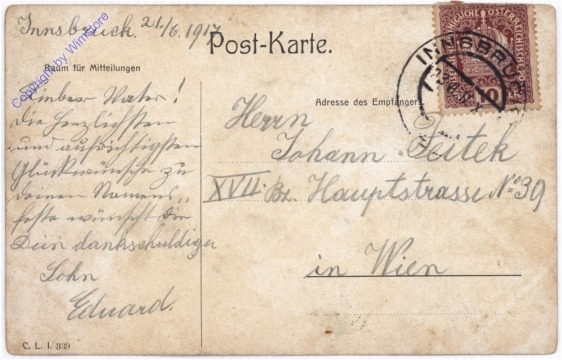 Innsbruck. 21./6. 1917
Copyright by WimStore
Post-Karte.
Raum für Mitteilungen
Lieber Vater!
Die herzlichsten
und aufrichtigsten
Glückwünsche zu
deinem Namens-
feste wünscht dir
Dein dankschuldiger
Sohn
Eduard.
C. L. I. 839
KAISERLICHE KÖNIGLICHE ÖSTERREICHISCHE POST
10
INNSBRUCK
Adresse des Empfängers
Herrn
Johann
XVII. Bz. Hauptstrasse No 39
in Wien